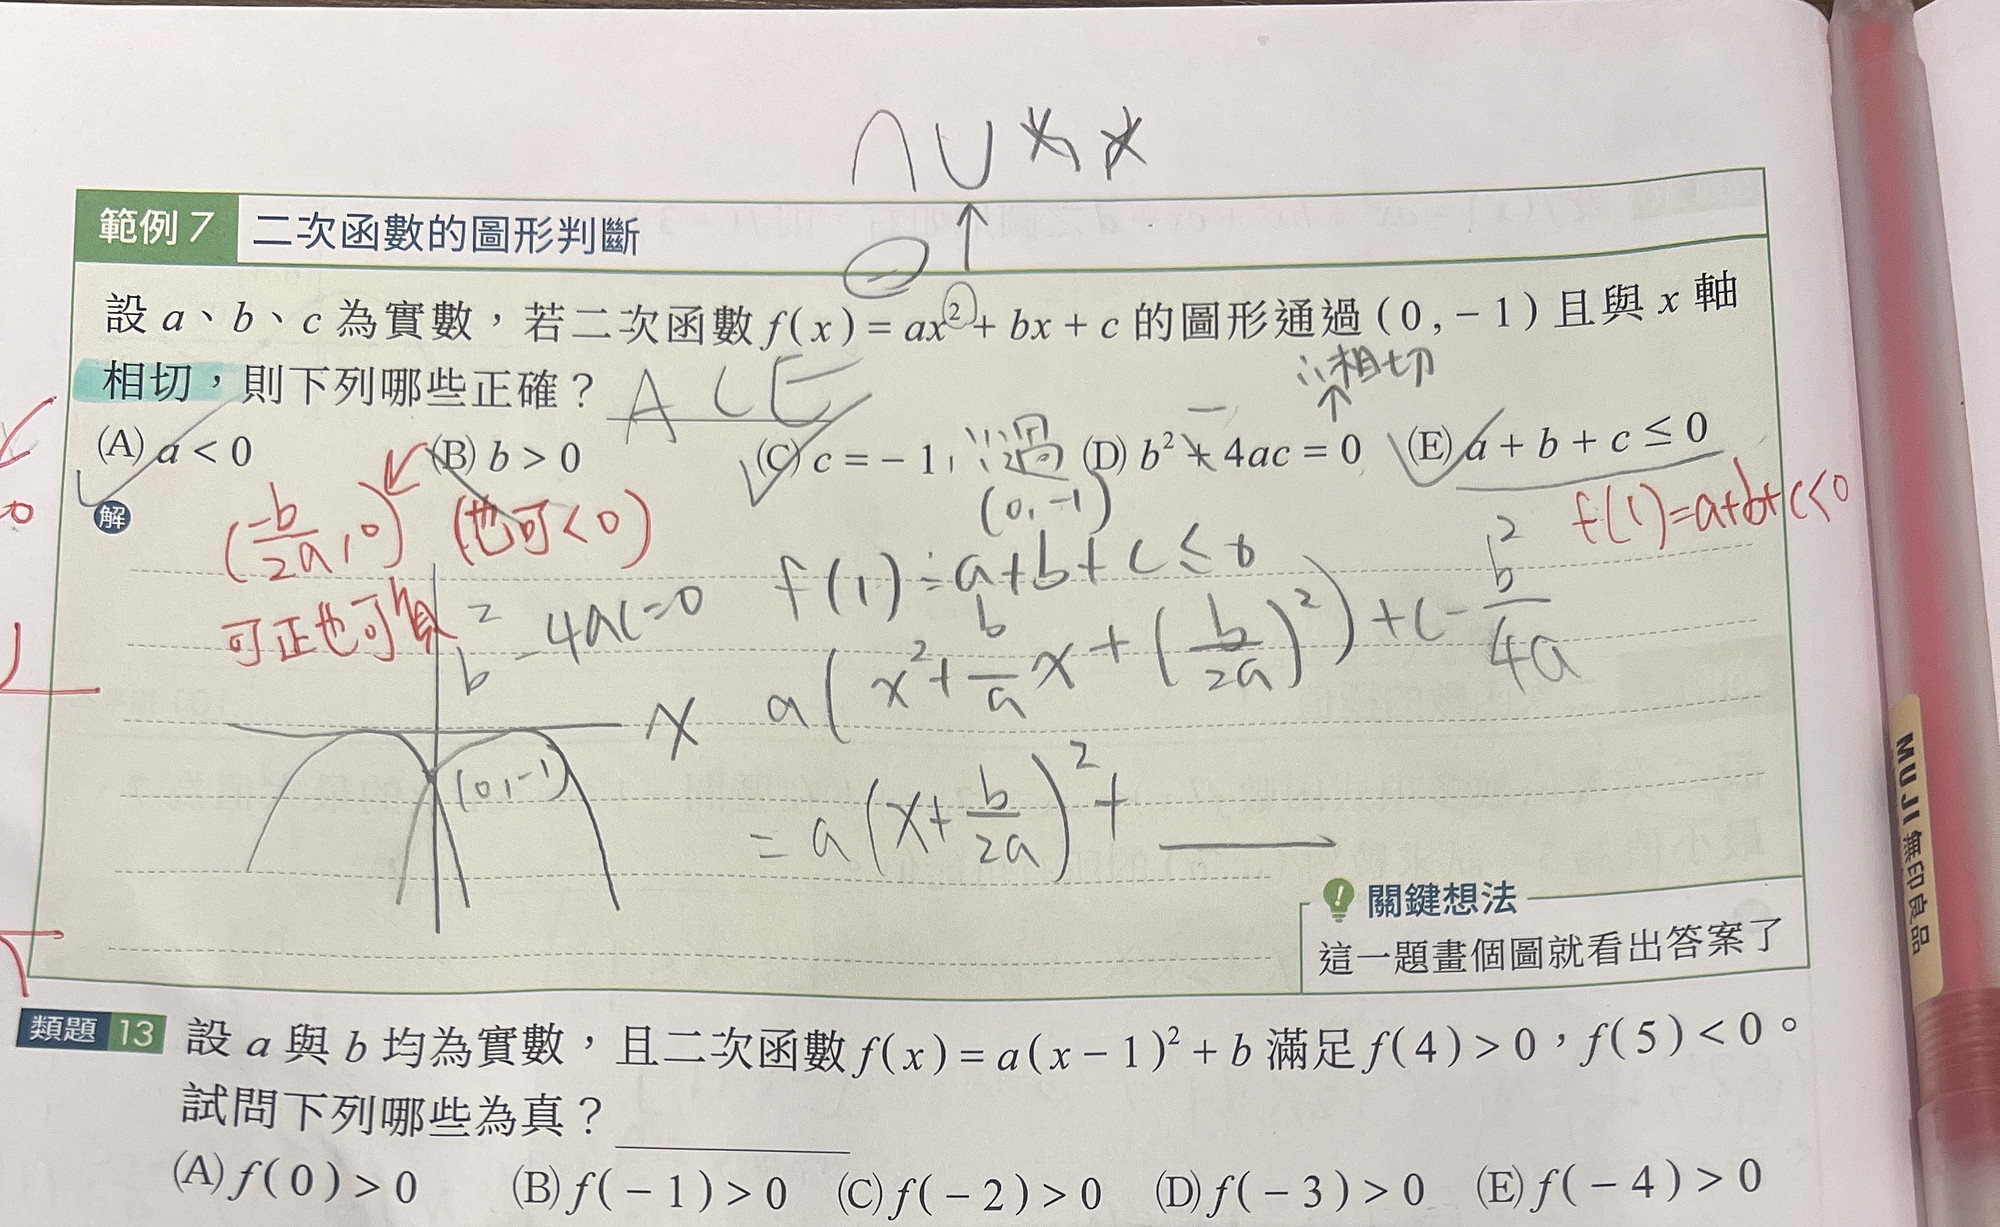 ∩ ∪
範例 7 二次函數的圖形判斷
設 a、b、c 為實數，若二次函數 f(x) = ax² + bx + c 的圖形通過 (0, −1) 且與 x 軸
相切，則下列哪些正確？ A C E
∵相切
(A) a < 0 (B) b > 0 (C) c = −1 (D) b² + 4ac = 0 (E) a + b + c ≤ 0
∵過 (0, −1)
解
(−b/2a, 0) (也可<0)
f(1) = a+b+c<0
可正也可負
b² − 4ac = 0
f(1) = a+b+c ≤ 0
a(x² + b/a x + (b/2a)²) + c − b²/4a
x
(0, −1)
= a(x + b/2a)² +
關鍵想法
這一題畫個圖就看出答案了
類題 13 設 a 與 b 均為實數，且二次函數 f(x) = a(x − 1)² + b 滿足 f(4) > 0，f(5) < 0。
試問下列哪些為真？
(A) f(0) > 0 (B) f(−1) > 0 (C) f(−2) > 0 (D) f(−3) > 0 (E) f(−4) > 0
MUJI 無印良品